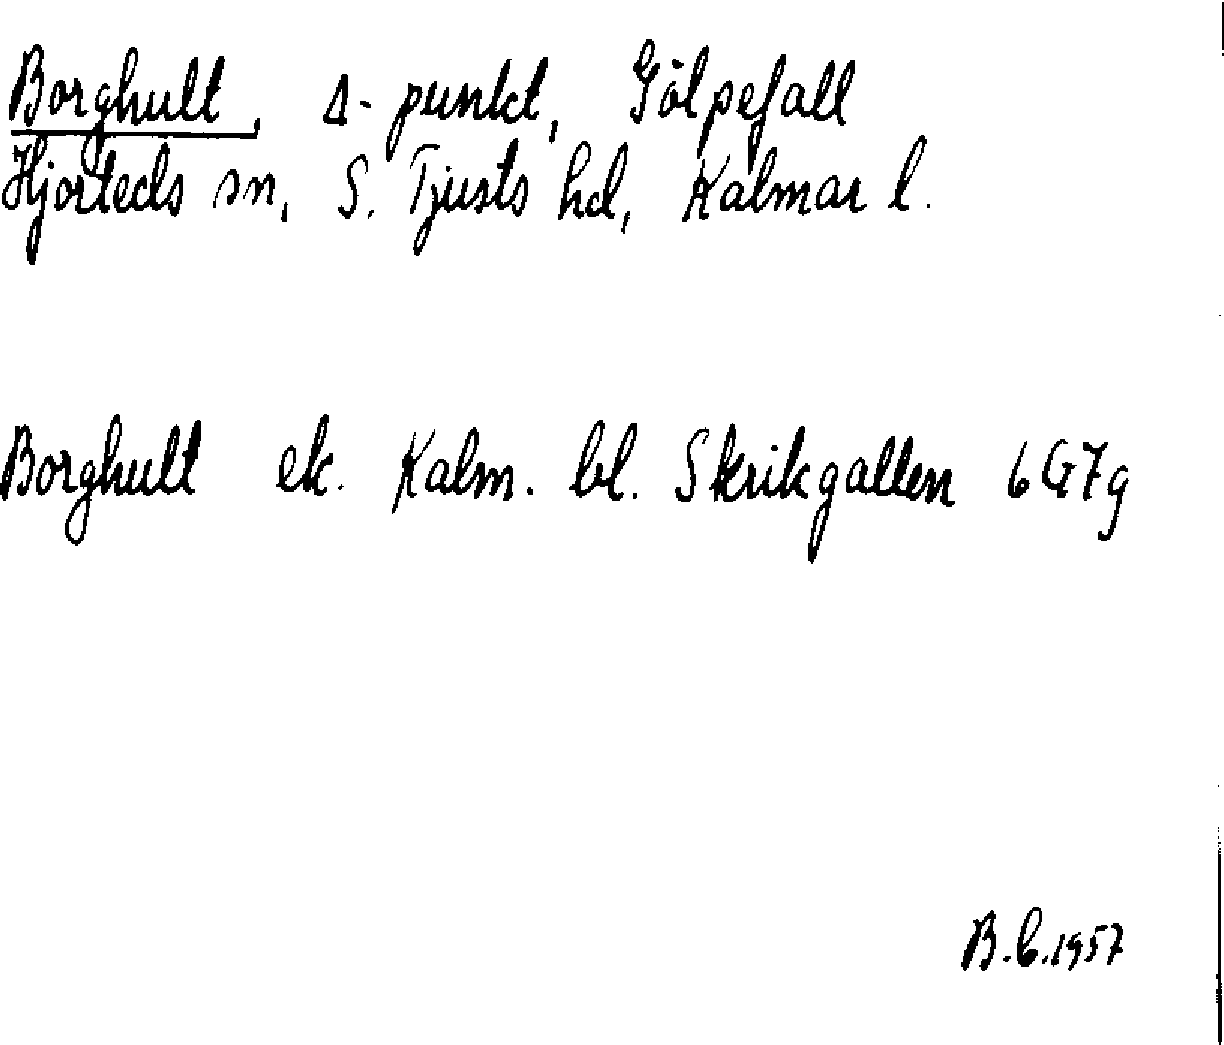 Borghult, Δ-punkt, Gölpefall
Hjorteds sn, S. Tjusts hd, Kalmar l.
Borghult ek. Kalm. bl. Skrikgallen 6G7g
B.L.1957